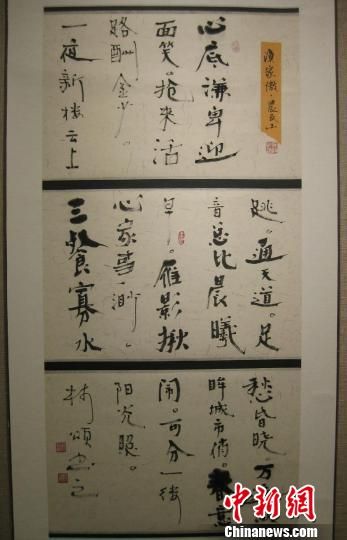 漁家傲·農民工
心底谦卑迎
面笑。抢来活
路酬金少。
一夜新楼云上
跳。通天道。足
音总比晨曦
早。雁影揪
心家事渺。
三餐寡水
愁昏晓。万
眸城市俏。春意
闹。可分一缕
阳光照。
林頌书之
中新网
WWW.CHINANEWS.COM